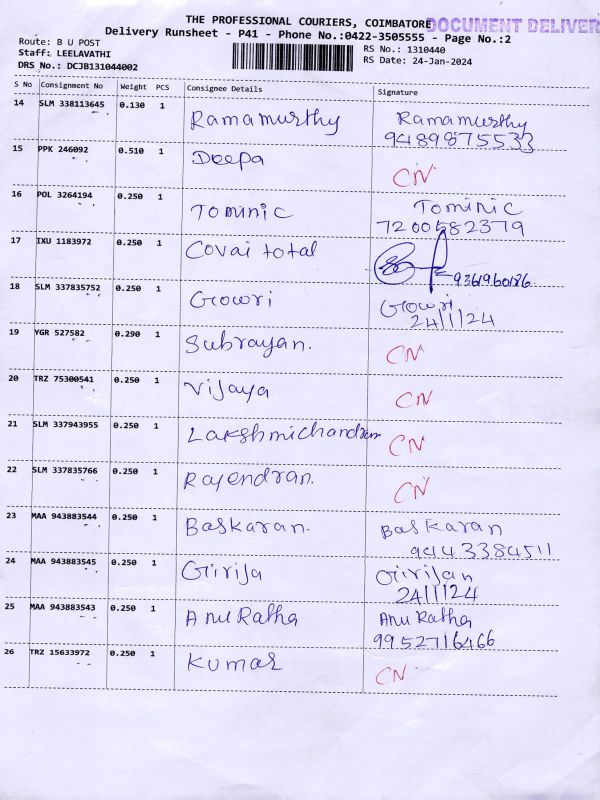 THE PROFESSIONAL COURIERS, COIMBATORE
DOCUMENT DELIVER
Delivery Runsheet - P41 - Phone No.:0422-3505555 - Page No.:2
Route: B U POST
RS No.: 1310440
Staff: LEELAVATHI
RS Date: 24-Jan-2024
DRS No.: DCJB131044002
S No Consignment No Weight PCS Consignee Details Signature
14 SLM 338113645 0.130 1 Ramamurthy Ramamurthy
9489875533
15 PPK 246092 0.510 1 Deepa CN
16 POL 3264194 0.250 1 Tominic Tominic
7200582379
17 IXU 1183972 0.250 1 Covai total
9361960186
18 SLM 337835752 0.250 1 Gowri Gowri
24/1/24
19 YGR 527582 0.290 1 Subrayan. CN
20 TRZ 75300541 0.250 1 Vijaya CN
21 SLM 337943955 0.250 1 Lakshmichandran CN
22 SLM 337835766 0.250 1 Rajendran. CN
23 MAA 943883544 0.250 1 Baskaran. Baskaran
9443384511
24 MAA 943883545 0.250 1 Girija Girijan
24/1/24
25 MAA 943883543 0.250 1 Anu Ratha Anu Ratha
9952716466
26 TRZ 15633972 0.250 1 Kumar CN